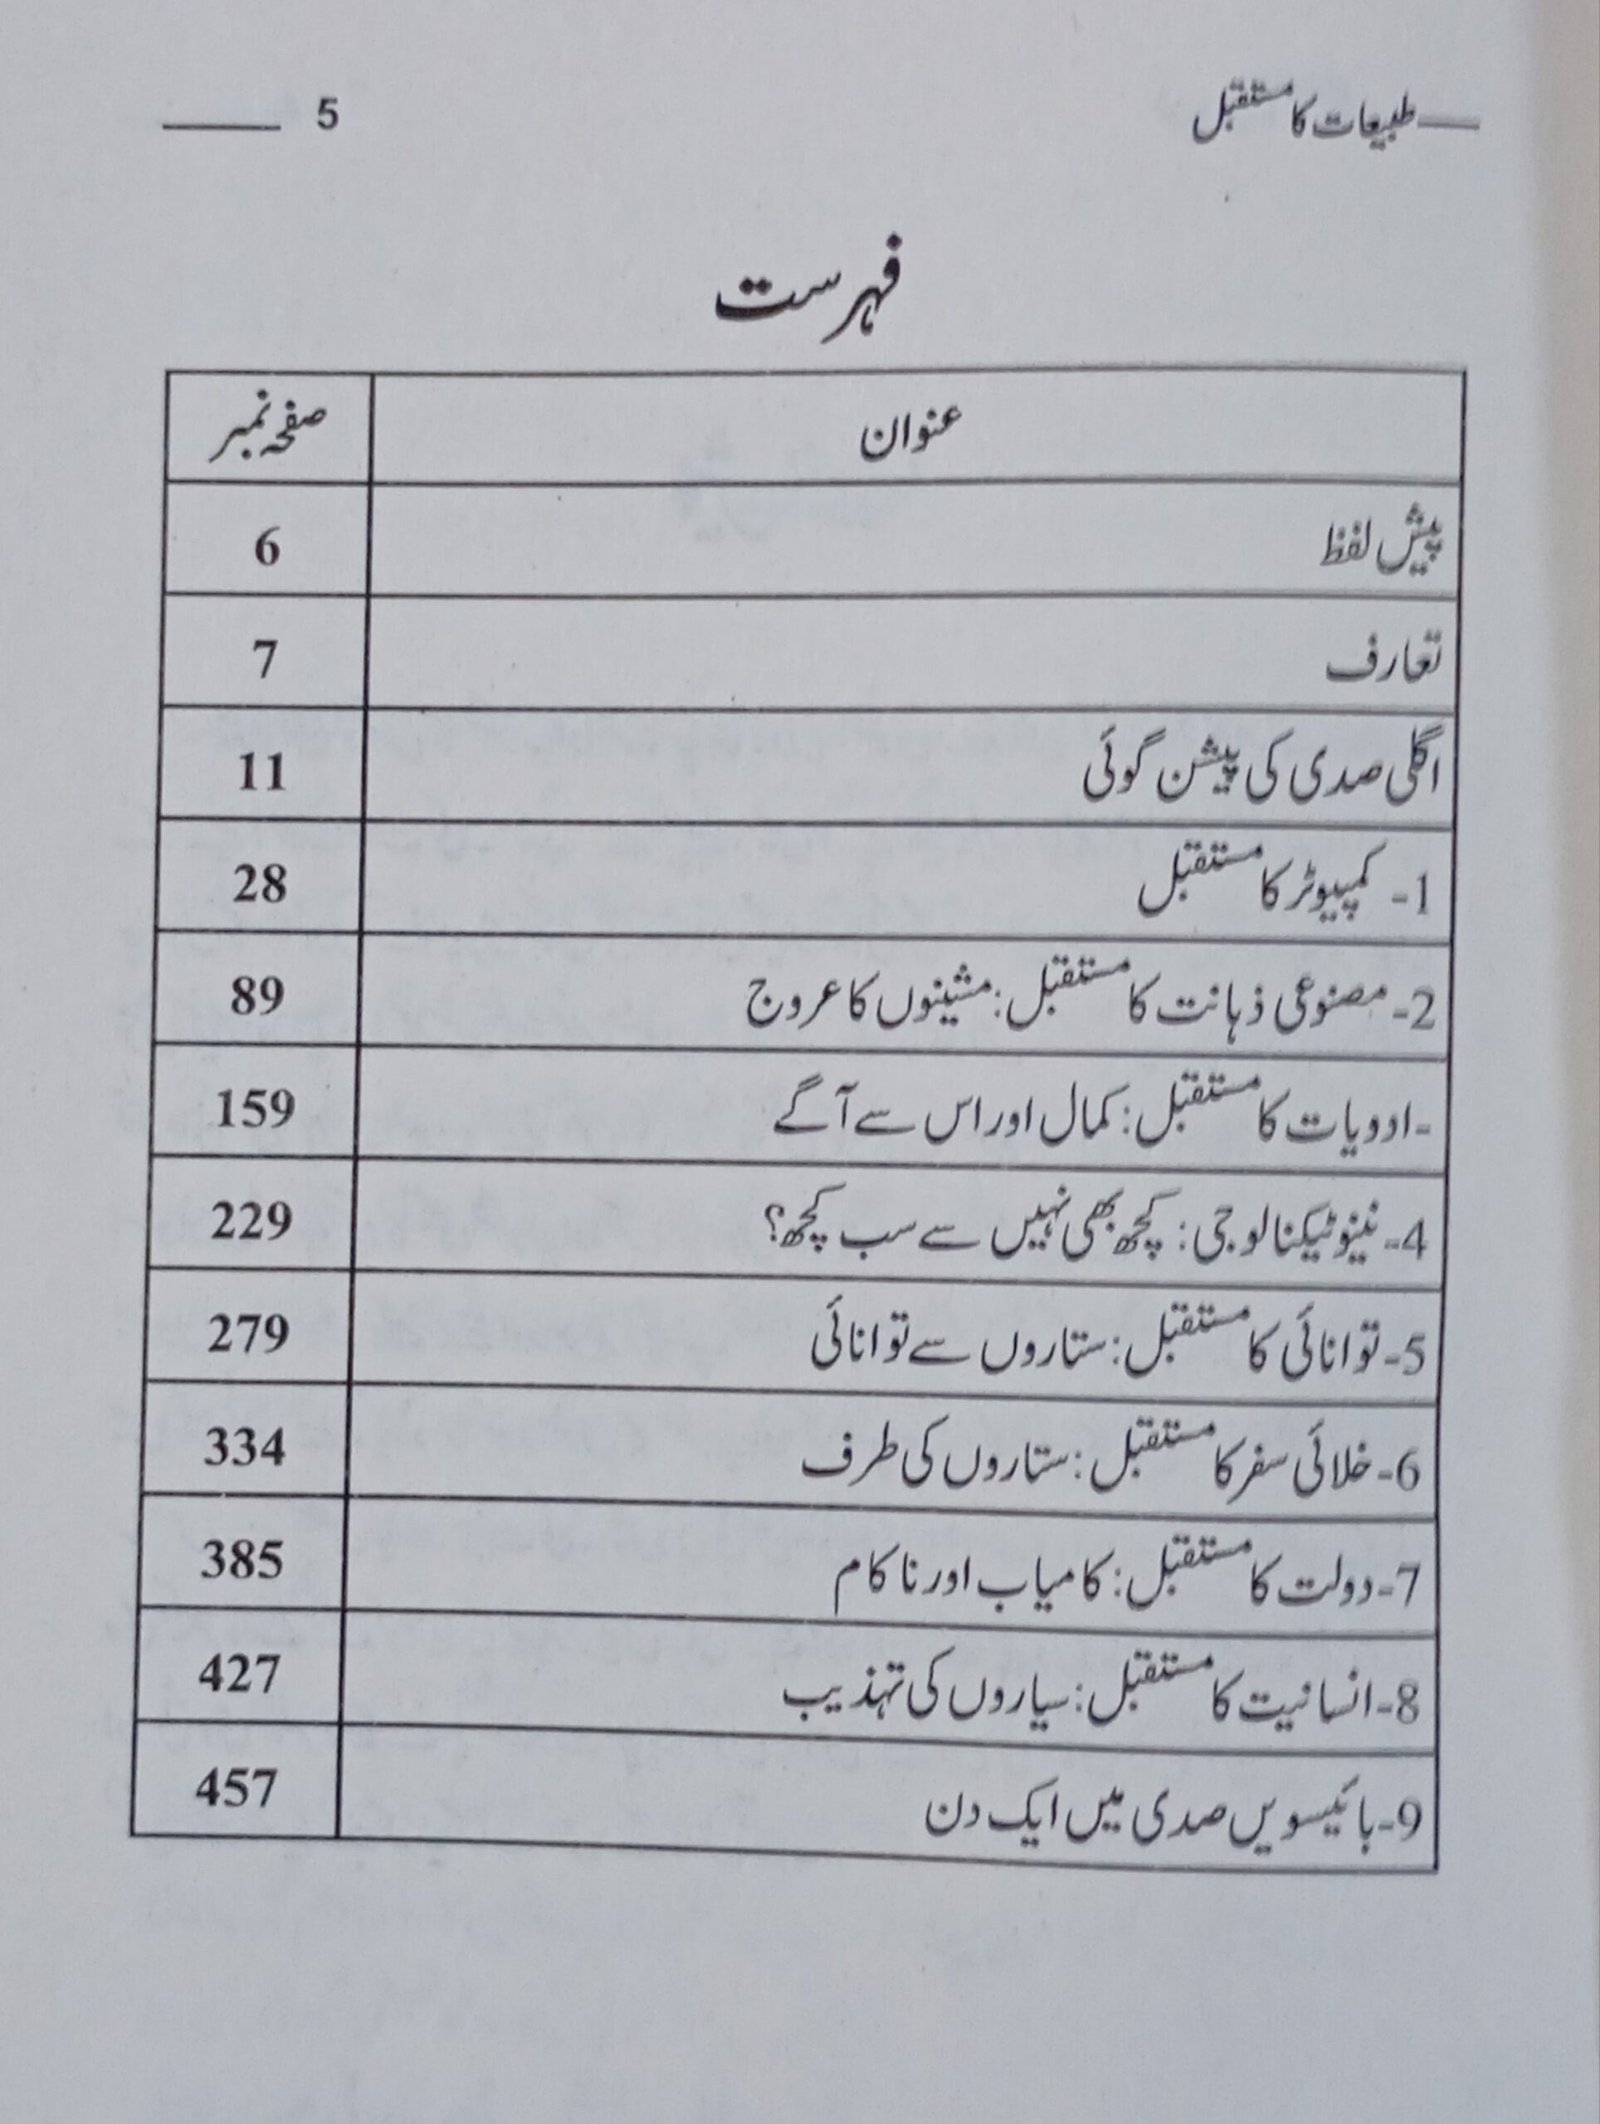 طبیعات کا مستقبل 5
فہرست
عنوان صفحہ نمبر
پیش لفظ 6
تعارف 7
اگلی صدی کی پیشن گوئی 11
1- کمپیوٹر کا مستقبل 28
2- مصنوعی ذہانت کا مستقبل: مشینوں کا عروج 89
-ادویات کا مستقبل: کمال اور اس سے آگے 159
4- نینوٹیکنالوجی: کچھ بھی نہیں سے سب کچھ؟ 229
5- توانائی کا مستقبل: ستاروں سے توانائی 279
6- خلائی سفر کا مستقبل: ستاروں کی طرف 334
7- دولت کا مستقبل: کامیاب اور ناکام 385
8- انسانیت کا مستقبل: سیاروں کی تہذیب 427
9- بائیسویں صدی میں ایک دن 457